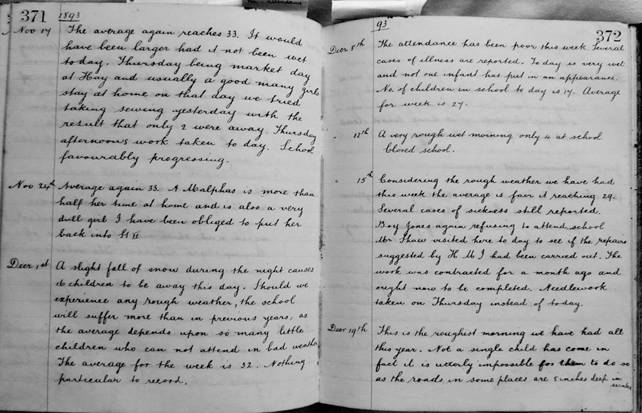 371
1893
Nov 17 The average again reaches 33. It would
have been larger had it not been wet
to day. Thursday being market day
at Hay and usually a good many girls
stay at home on that day we tried
taking sewing yesterday with the
result that only 2 were away. Thursday
afternoon's work taken to day. School
favourably progressing.
Nov 24th Average again 33. A Walphas is more than
half her time at home and is also a very
dull girl I have been obliged to put her
back into St II
Decr 1st A slight fall of snow during the night causes
16 children to be away this day. Should we
experience any rough weather, the school
will suffer more than in previous years, as
the average depends upon so many little
children who can not attend in bad weather
The average for the week is 32. Nothing
particular to record.
93
372
Decr 8th The attendance has been poor this week several
cases of illness are reported. To day is very wet
and not one infant has put in an appearance.
No. of children in school to day is 17. Average
for week is 27.
" 12th A very rough wet morning only 4 at school
Closed school.
" 15th Considering the rough weather we have had
this week the average is fair it reaching 29.
Several cases of sickness still reported.
Boy Jones again refusing to attend school
Mr Shaw visited here to day to see if the repairs
suggested by H M I had been carried out. The
work was contracted for a month ago and
ought now to be completed. Needlework
taken on Thursday instead of today.
Decr 19th This is the roughest morning we have had all
this year. Not a single child has come in
fact it is utterly impossible for them to do so
as the roads in some places are 5 inches deep in